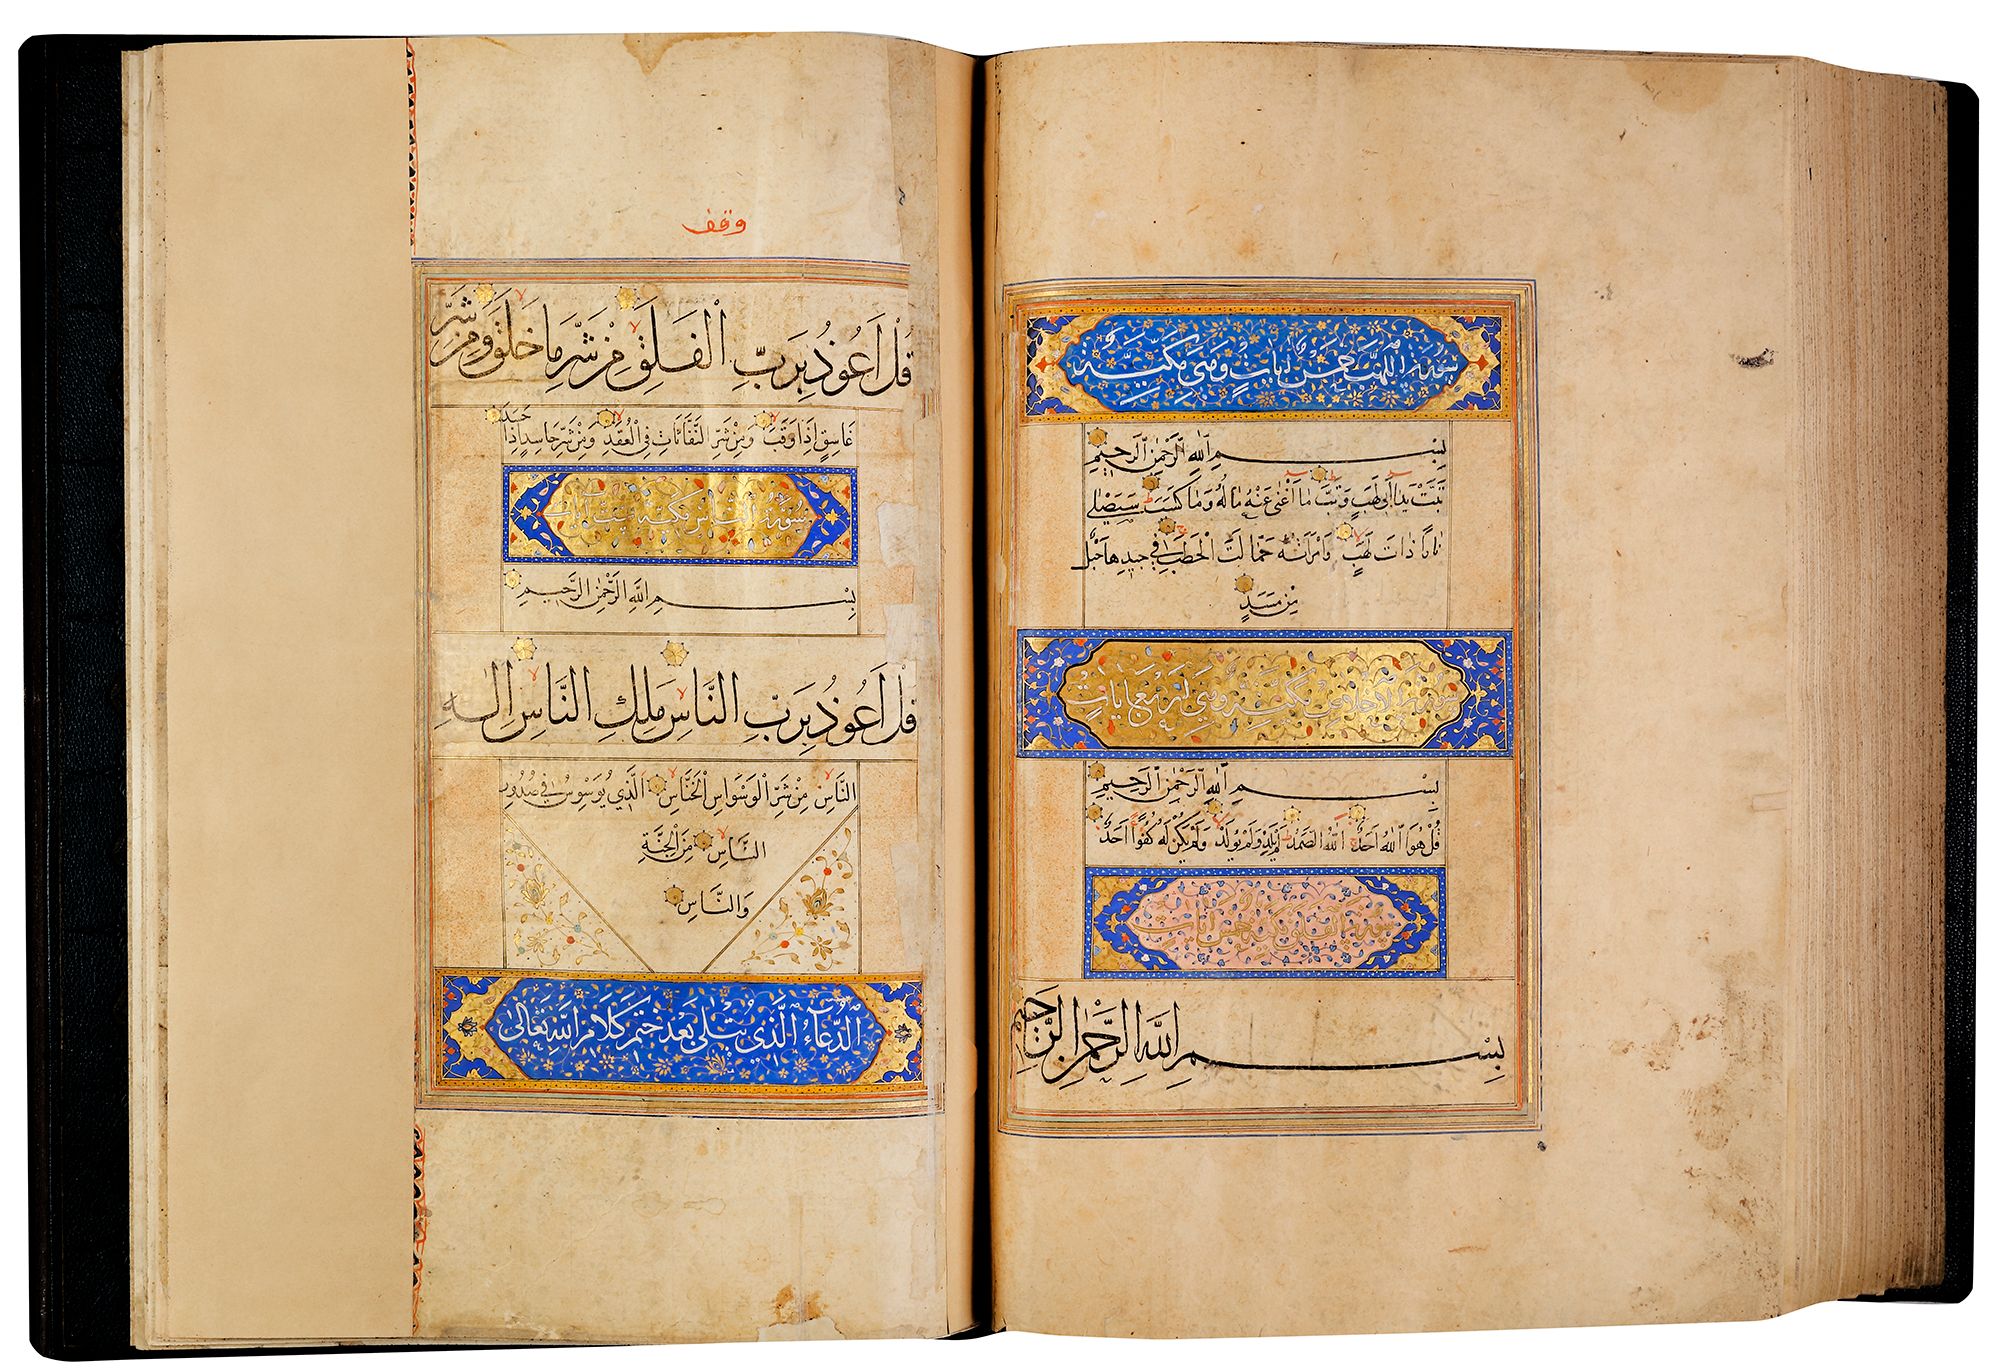 سورة اللهب خمس آيات وهي مكية
بِسْمِ اللهِ الرَّحْمٰنِ الرَّحِيمِ
تَبَّتْ يَدَا أَبِي لَهَبٍ وَتَبَّ مَا أَغْنَى عَنْهُ مَالُهُ وَمَا كَسَبَ سَيَصْلَى
نَارًا ذَاتَ لَهَبٍ وَامْرَأَتُهُ حَمَّالَتَ الْحَطَبِ فِي جِيدِهَا حَبْلٌ
مِنْ مَسَدٍ
سورة الاخلاص مكية وهي اربع ايات
بِسْمِ اللهِ الرَّحْمٰنِ الرَّحِيمِ
قُلْ هُوَ اللهُ أَحَدٌ اَللهُ الصَّمَدُ لَمْ يَلِدْ وَلَمْ يُولَدْ وَلَمْ يَكُنْ لَهُ كُفُوًا أَحَدٌ
سورة الفلق مكية خمس ايات
بِسْمِ اللهِ الرَّحْمٰنِ الرَّحِيمِ
وقف
قُلْ أَعُوذُ بِرَبِّ الْفَلَقِ مِنْ شَرِّ مَا خَلَقَ وَمِنْ شَرِّ
غَاسِقٍ إِذَا وَقَبَ وَمِنْ شَرِّ النَّفَّاثَاتِ فِي الْعُقَدِ وَمِنْ شَرِّ حَاسِدٍ إِذَا حَسَدَ
سورة الناس مكية ست ايات
بِسْمِ اللهِ الرَّحْمٰنِ الرَّحِيمِ
قُلْ أَعُوذُ بِرَبِّ النَّاسِ مَلِكِ النَّاسِ إِلٰهِ
النَّاسِ مِنْ شَرِّ الْوَسْوَاسِ الْخَنَّاسِ الَّذِي يُوَسْوِسُ فِي صُدُورِ
النَّاسِ مِنَ الْجِنَّةِ
وَالنَّاسِ
الدُّعَاءُ الَّذِي يُتْلَى بَعْدَ خَتْمِ كَلَامِ اللهِ تَعَالَى